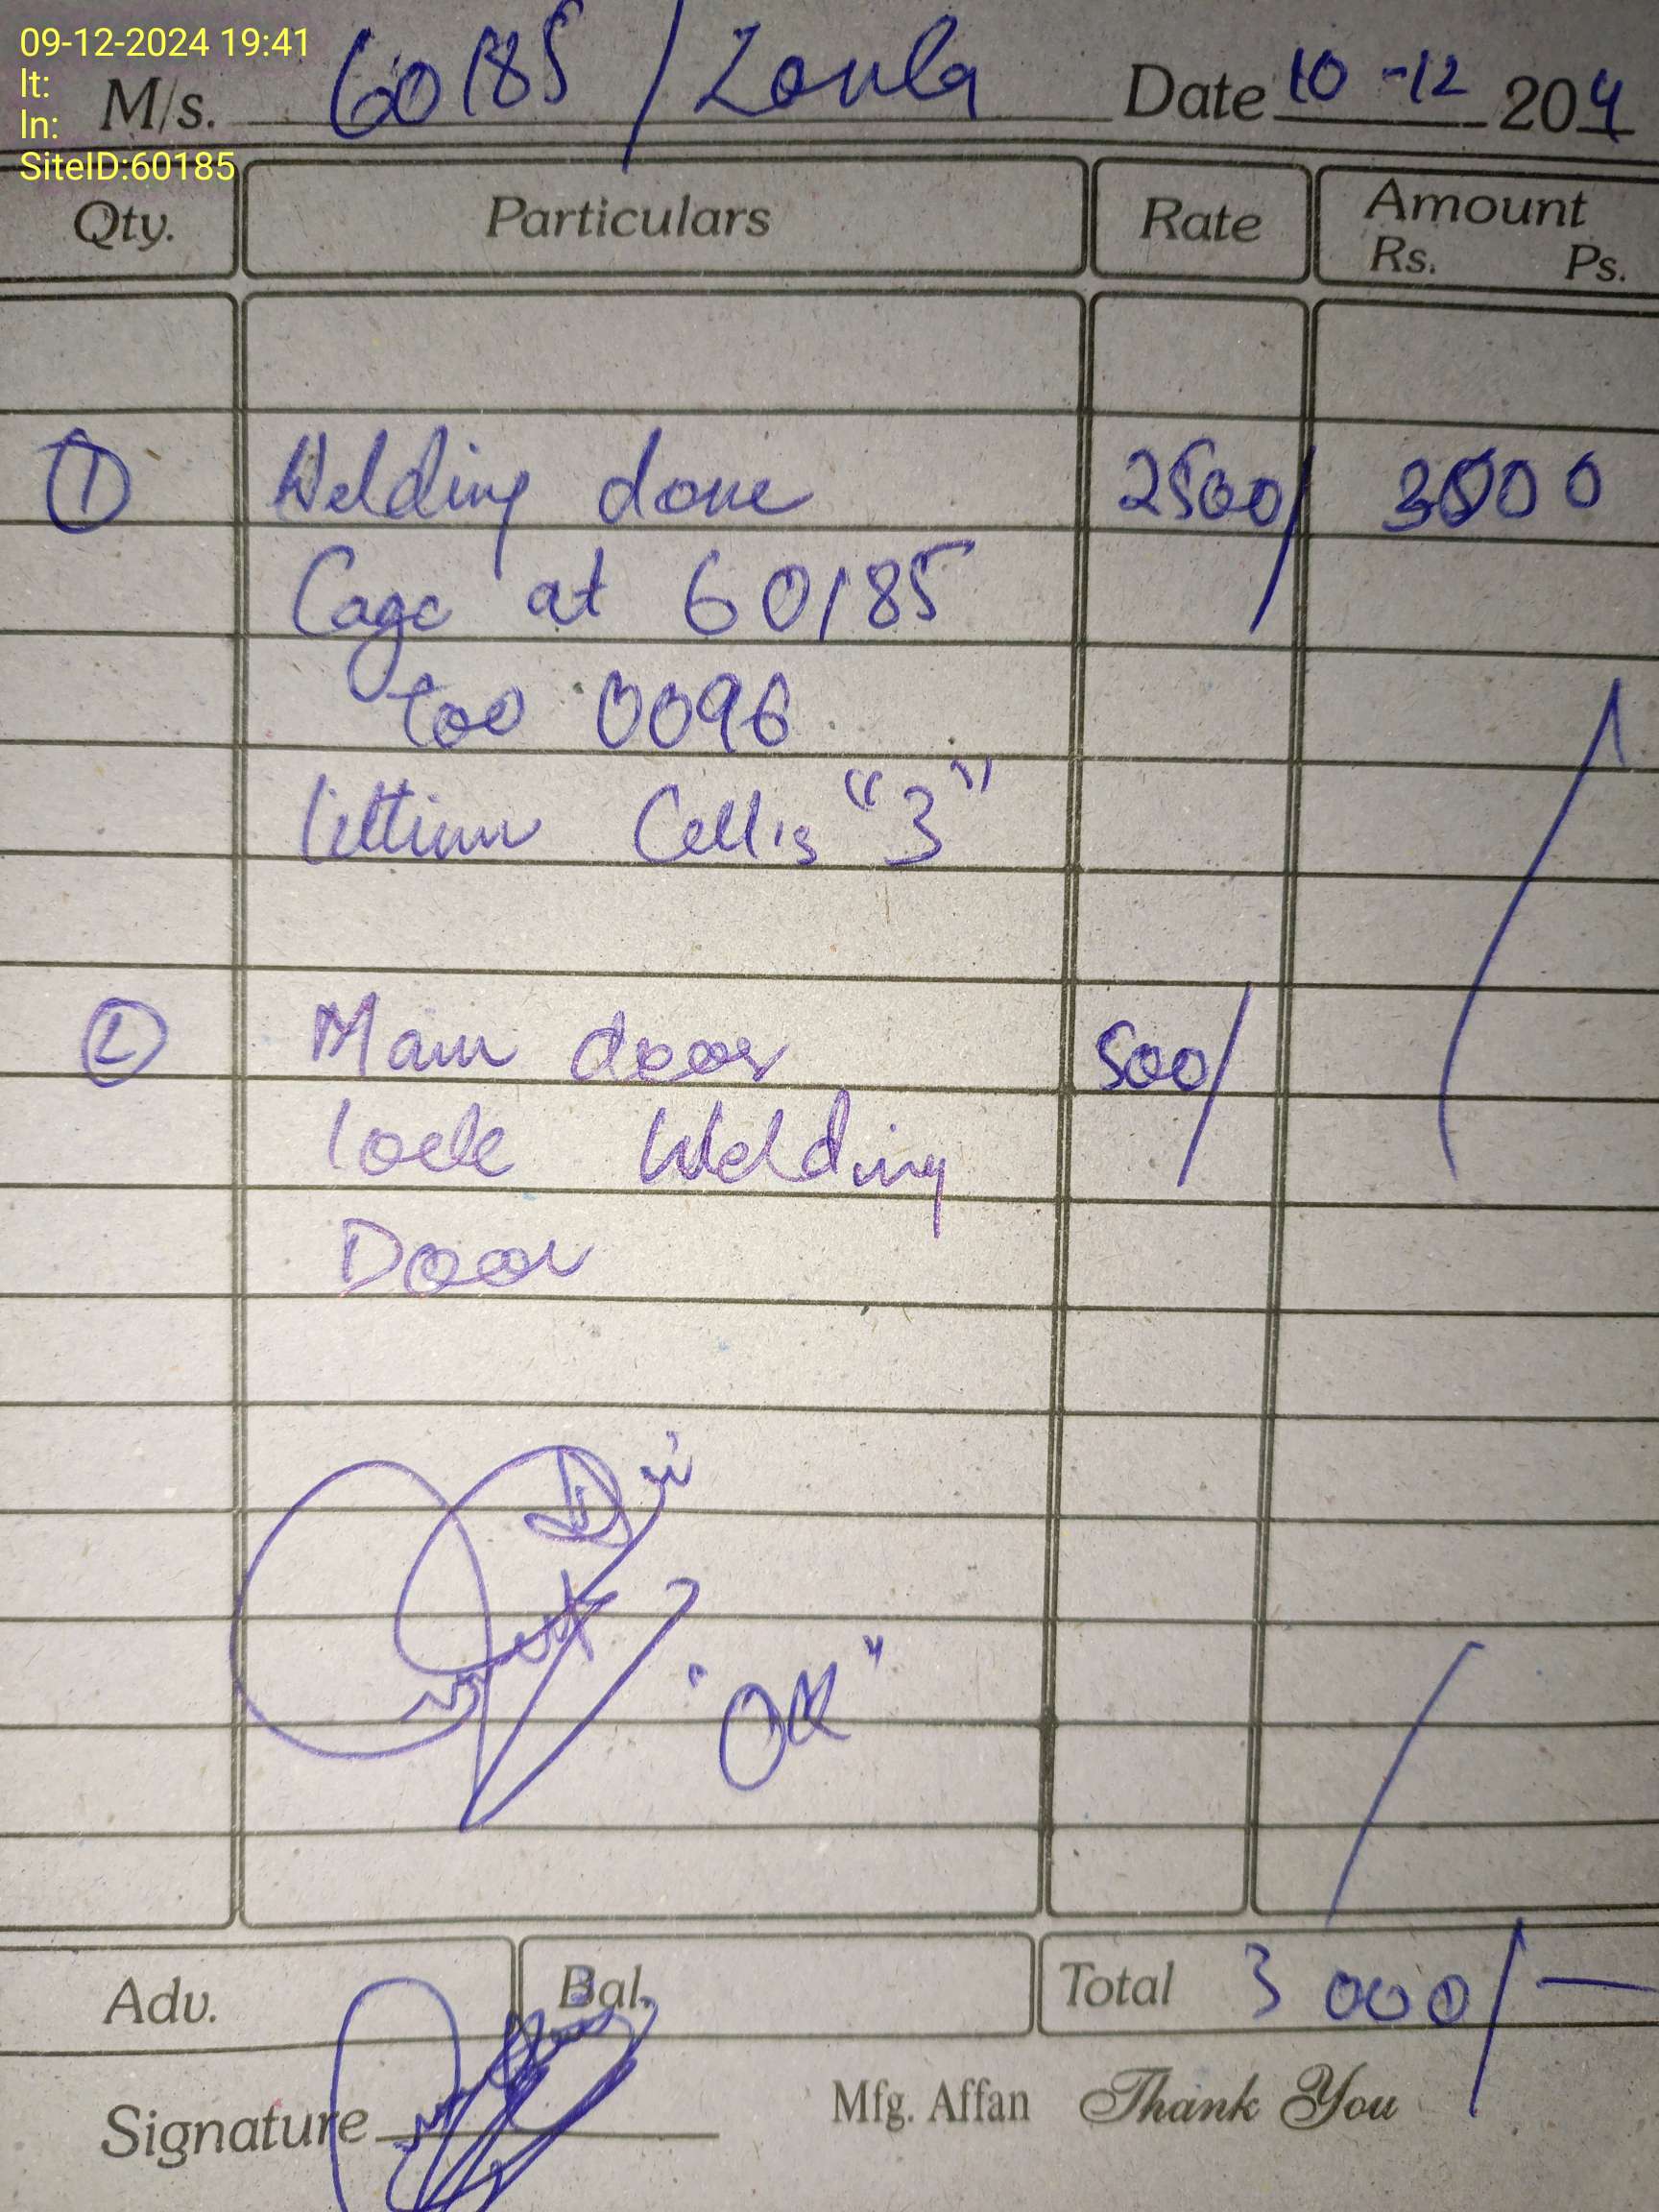 09-12-2024 19:41
lt:
ln:
SiteID:60185
M/s. 60185 / Date 10-12 204
Qty. Particulars Rate Amount
Rs. Ps.
1 Welding done 2500/ 3000
Cage at 60185
too 0096
littium Cell's "3"
2 Main door 500/
lock Welding
Door
"OK"
Adv. Bal. Total 3000/-
Signature Mfg. Affan Thank You